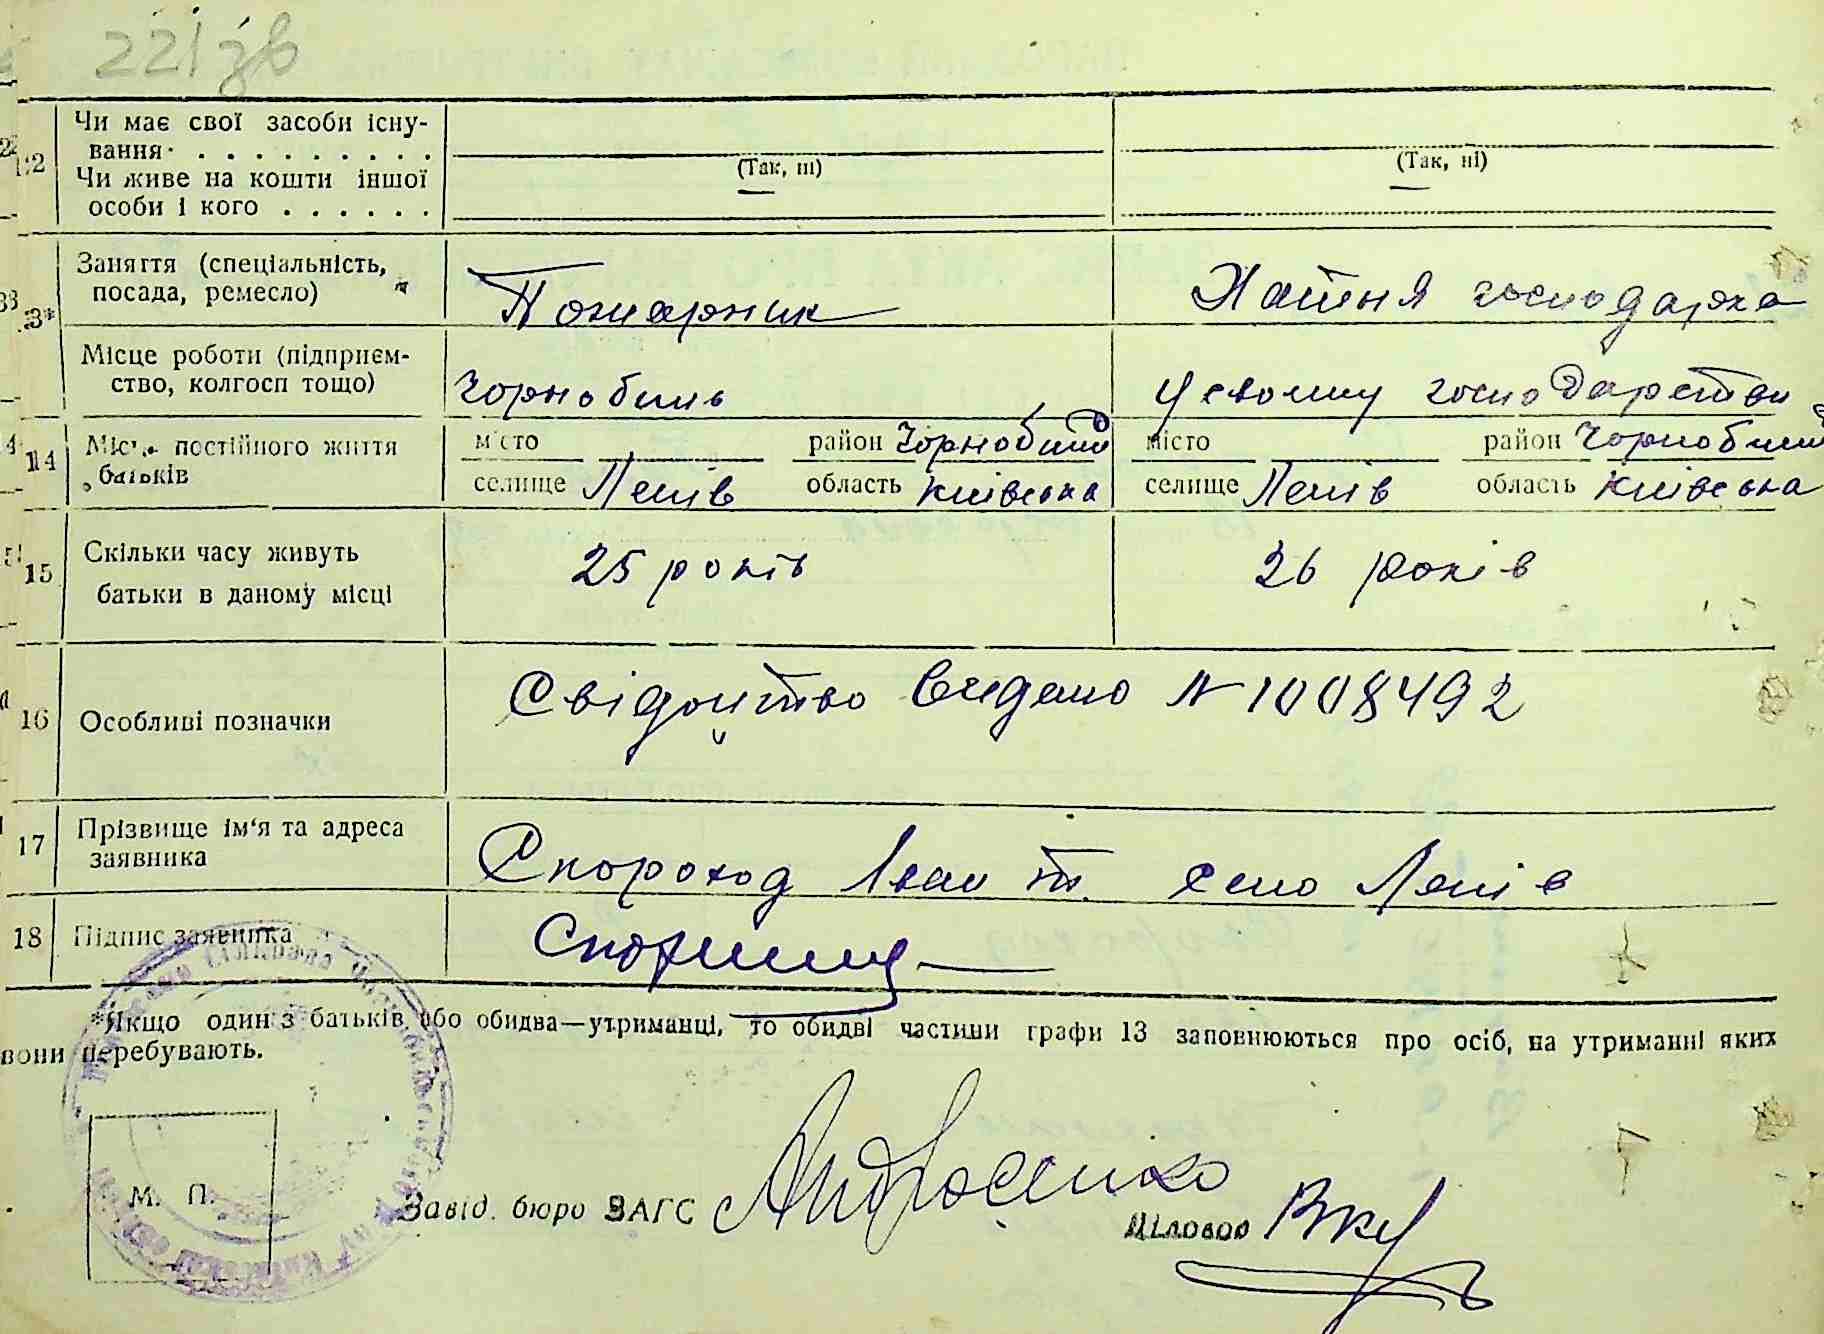 221 зв
12 Чи має свої засоби існу-
вання . . . . . . . . .
(Так, ні) (Так, ні)
Чи живе на кошти іншої
особи і кого . . . . . .
3* Заняття (спеціальність,
посада, ремесло) Пожарник Хатня господарка
Місце роботи (підприєм-
ство, колгосп тощо) Чорнобиль У своєму господарстві
14 Місце постійного життя місто район Чорнобил місто район Чорнобил
батьків селище Лелів область Київська селище Лелів область Київська
15 Скільки часу живуть 25 років 26 років
батьки в даному місці
16 Особливі позначки Свідоцтво видано N 1008492
17 Прізвище ім'я та адреса
заявника Скороход Іван село Лелів
18 Підпис заявника
*Якщо один з батьків або обидва—утриманці, то обидві частини графи 13 заповнюються про осіб, на утриманні яких
вони перебувають.
М. П.
Завід. бюро ЗАГС Андросенко
Діловод